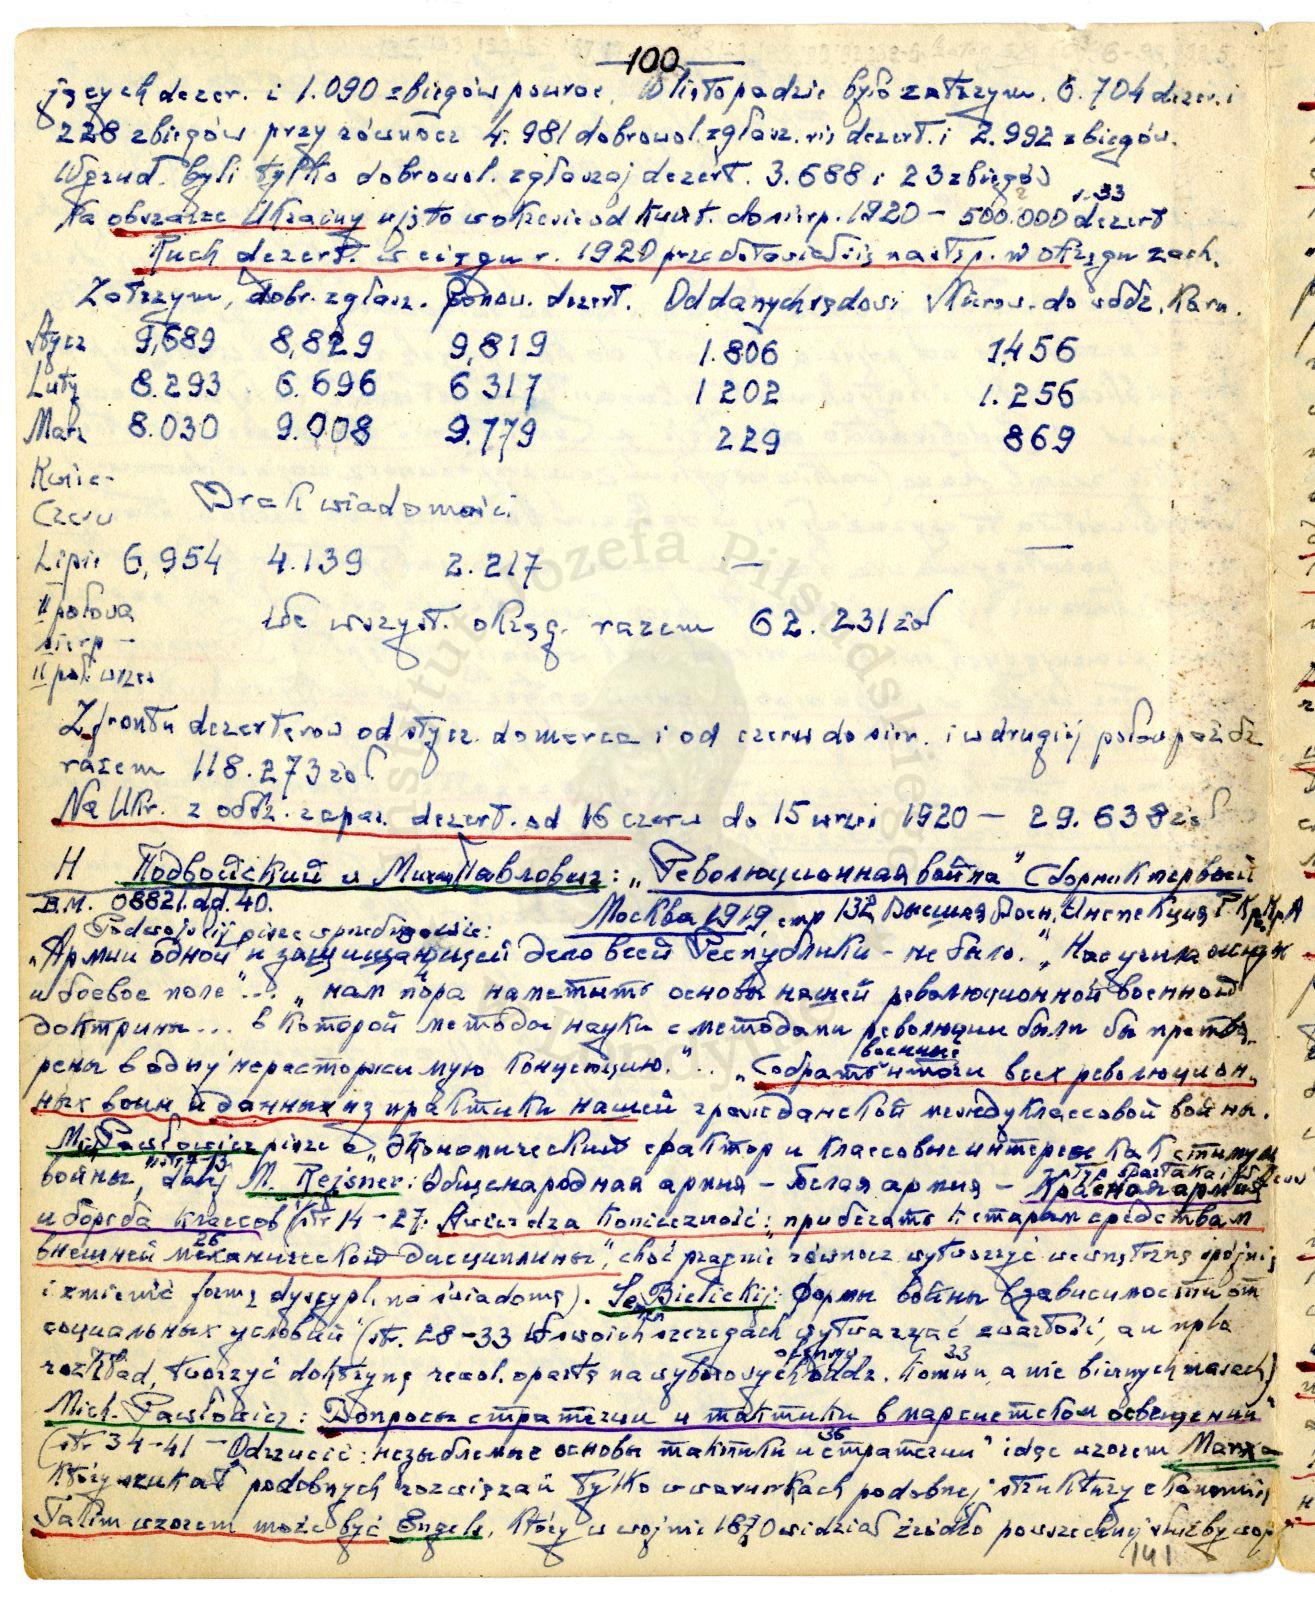 — 100 —
jących dezer. i 1.090 zbiegów powroc. W listopadzie było zatrzym. 6.704 dezer. i
228 zbiegów przy równocz 4.981 dobrowol. zgłasz. się dezert. i 2.992 zbiegów.
W grud. byli tylko dobrowol. zgłaszaj dezert. 3.688 i 23 zbiegów
Na obszarze Ukrainy ujęto w okresie od kwiet. do sierp. 1920 — 500.000 dezert
33
Ruch dezert. w ciągu r. 1920 przedstawiał się następ. w okręgu zach.
Zatrzym, dobr. zgłasz. Ponow. dezert. Oddanych sądowi Skierow. do oddz. Karn.
Stycz 9,689 8,829 9,819 1.806 1456
Luty 8.293 6.696 6317 1202 1.256
Marz 8.030 9.008 9.779 229 869
Kwie-
Czerw Brak wiadomości
Lipie 6,954 4.139 2.217 — —
II połowa
sierp — We wszyst. okręg. razem 62.231 żoł
II poł. wrześ
Z frontu dezerterów od stycz. do marca i od czerw do sier. i w drugiej połow paźdz
razem 118.273 żoł.
Na Ukr. z oddz. zapas. dezert. od 16 czerw do 15 wrześ 1920 — 29.638 żoł
Н Подвойский и Мих. Павлович: „Революционная война" Сборник первый
B.M. 08821.dd.40. Москва 1919, стр 132 Высшая Воен. Инспекция Р.Кр.Кр.А
Podwojskij pisze w przedmowie:
„Армии одной и защищающей дело всей Республики - не было." „Нас учила
и боевое поле"... „нам пора наметить основы нашей революционной военной
доктрины... в которой методы науки с методами революции были бы претво
рены в одну нерасторжимую концепцию."... „Собрать итоги всех революцион
военные
ных войн и данных из практики нашей гражданской междуклассовой войны.
Mich Pawłowicz pisze o „Экономический фактор и классовые интересы как стимул
войны, dalej M. Rejsner: Общенародная армия - Белая армия - Красная армия
и борьба классов (str 14-27: Stwierdza konieczność: „прибегать к старым средствам
26
внешней механической дисциплины", choć pragnie równocz wytworzyć wewnętrzną spójnię
i zmienić formę dyscypl. na świadomą). Bielickij: Формы войны в зависимости от
социальных условий" (str. 28-33 W swoich szeregach wytwarzać zwartość, a u npla
rozkład, tworzyć doktrynę rewol. opartą na wyborowych oddz. komun, a nie biernych masach)
33
Mich. Pawłowicz: Вопросы стратегии и тактики в марксистском освещении"
(str 34-41 — Odrzucić: незыблемые основы тактики и стратегии" idąc wzorem Marxa
36
który szukał podobnych rozwiązań tylko w warunkach podobnej struktury ekonomicz
Takim wzorem może być Engels, który w wojnie 1870 widział źródło powszechnej służby woj
141